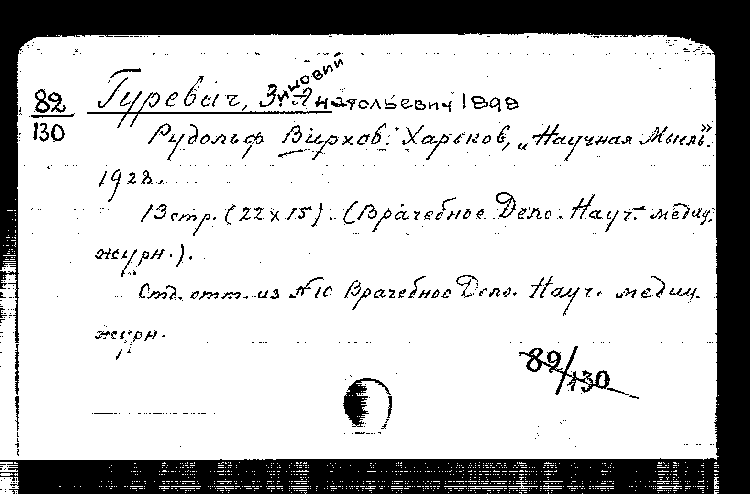 82
130
Гуревич, Зиновий Анатольевич 1898
Рудольф Вирхов. Харьков, „Научная Мысль".
1928.
13 стр. (22 х 15). (Врачебное Дело. Науч. медиц.
журн.).
Отд. отт. из № 10 Врачебное Дело. Науч. медиц.
журн.
82/130